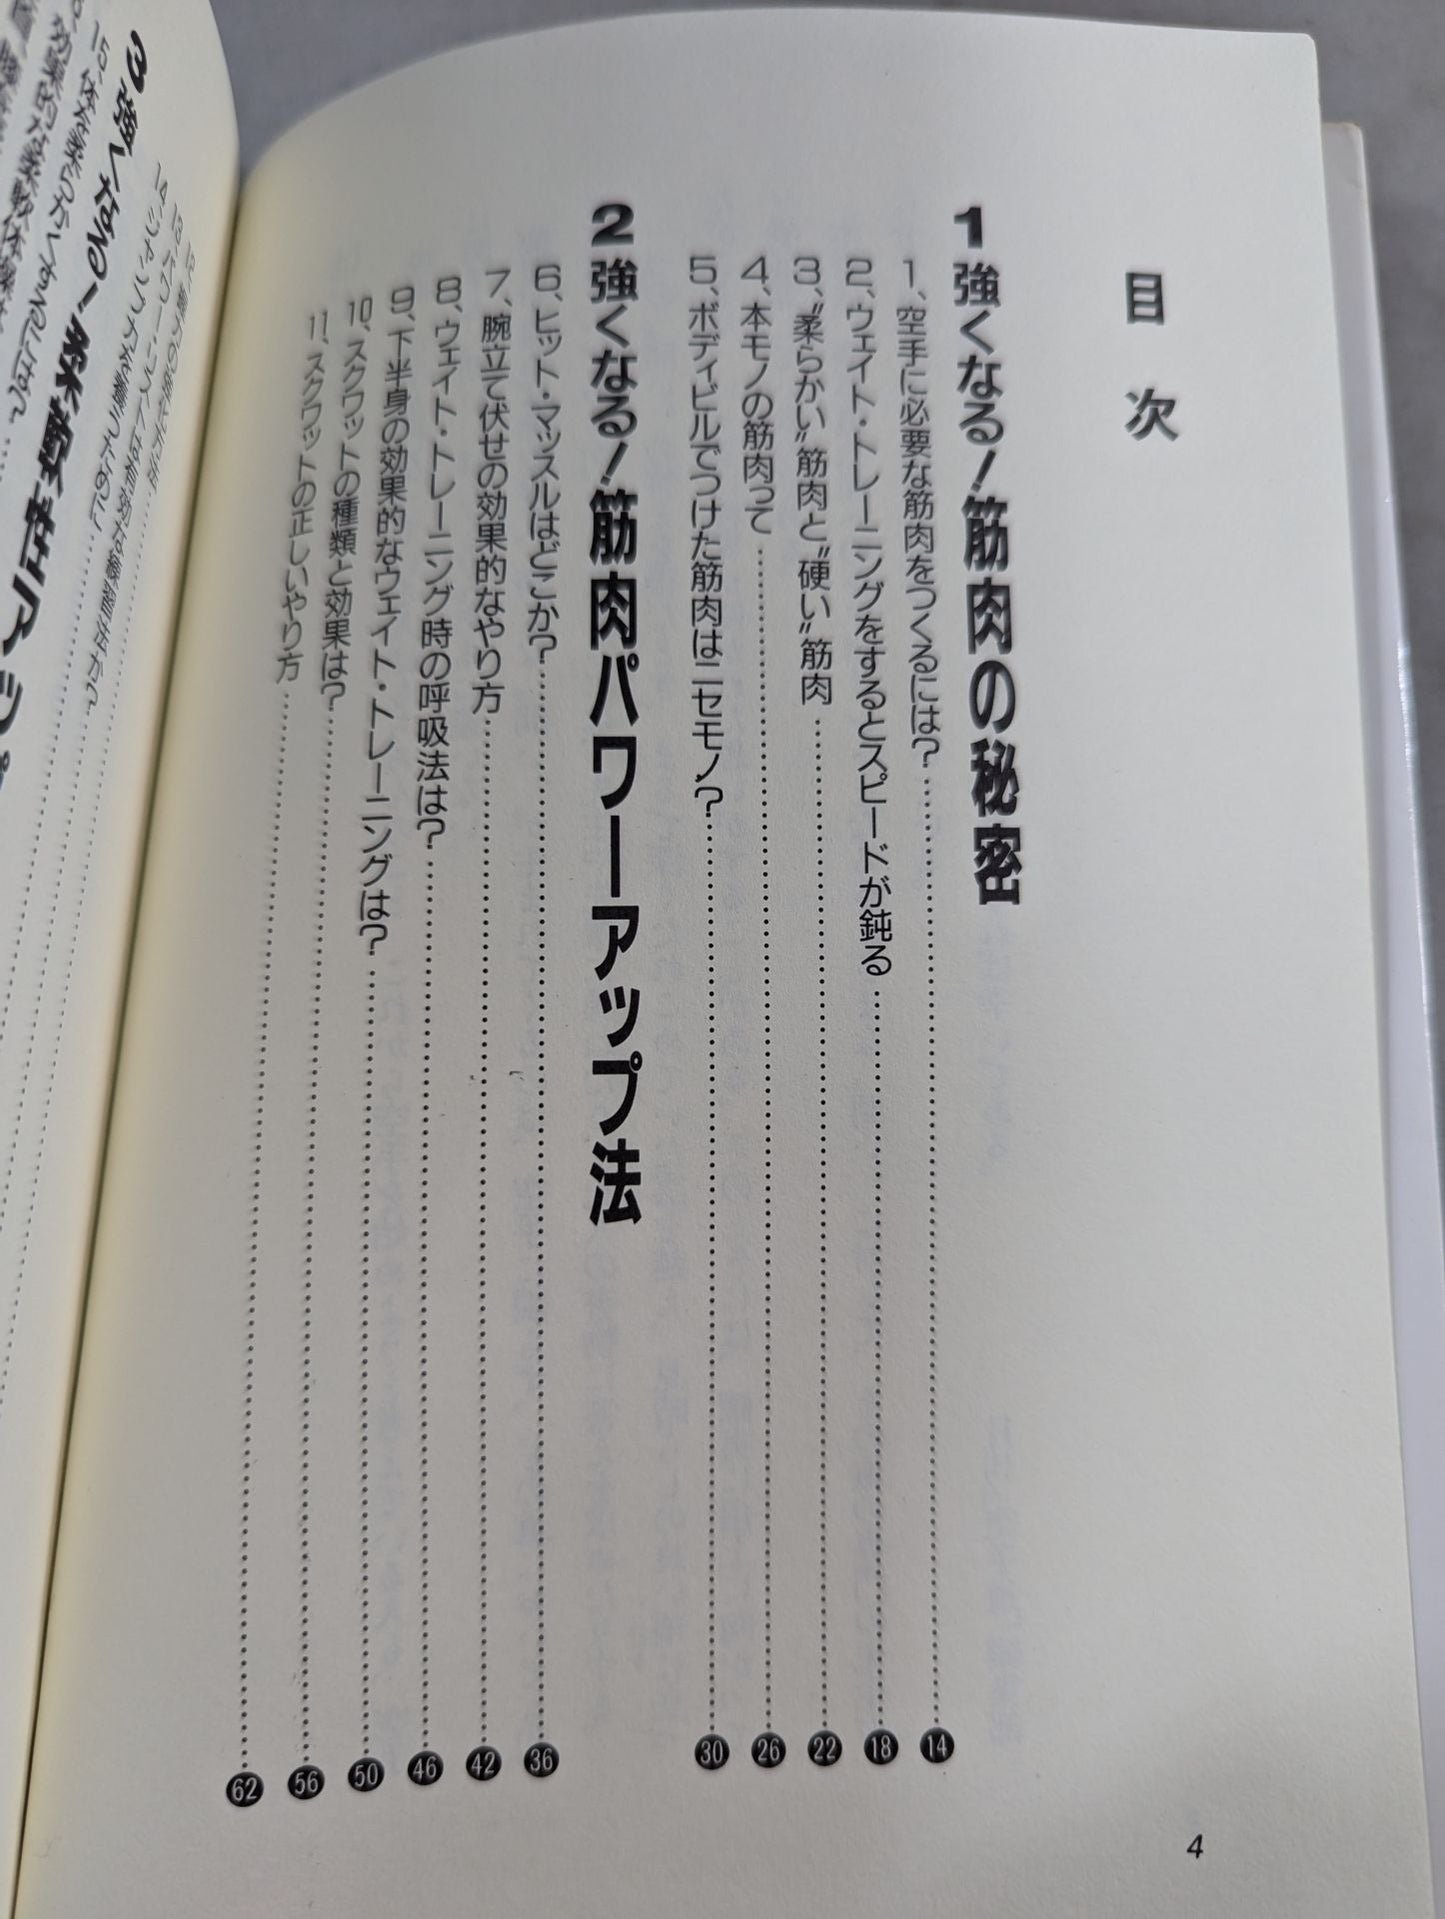 目次
1 強くなる！筋肉の秘密
1、空手に必要な筋肉をつくるには？……14
2、ウェイト・トレーニングをするとスピードが鈍る……18
3、〝柔らかい〟筋肉と〝硬い〟筋肉……22
4、本モノの筋肉って……26
5、ボディビルでつけた筋肉はニセモノ？……30
2 強くなる！筋肉パワーアップ法
6、ヒット・マッスルはどこか？……36
7、腕立て伏せの効果的なやり方……42
8、ウェイト・トレーニング時の呼吸法は？……46
9、下半身の効果的なウェイト・トレーニングは？……50
10、スクワットの種類と効果は？……56
11、スクワットの正しいやり方……62
4
3 強くなる！柔軟性アップ
13、パワー・リストは有効な鍛錬法か？
14、ジャンプ力を養うために……
15、体を柔らかくするには？……